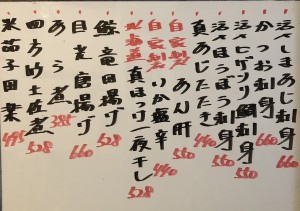 活〆しまあじ刺身 660
かつお刺身 660
活〆ヒゲソリ鯛刺身 550
活〆ほうぼう刺身 550
真あじたたき 440
自家製 あん肝 550
自家製 いか塩辛 440
北海道 真ほっけ一夜干し 528
鯨竜田揚げ
目光唐揚げ 660
あら煮 385
四方竹土佐煮 528
米茄子田楽 495